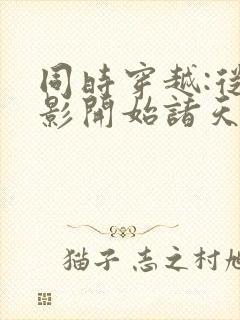 同時穿越:從
影開始諸天
猫子 志之村旭